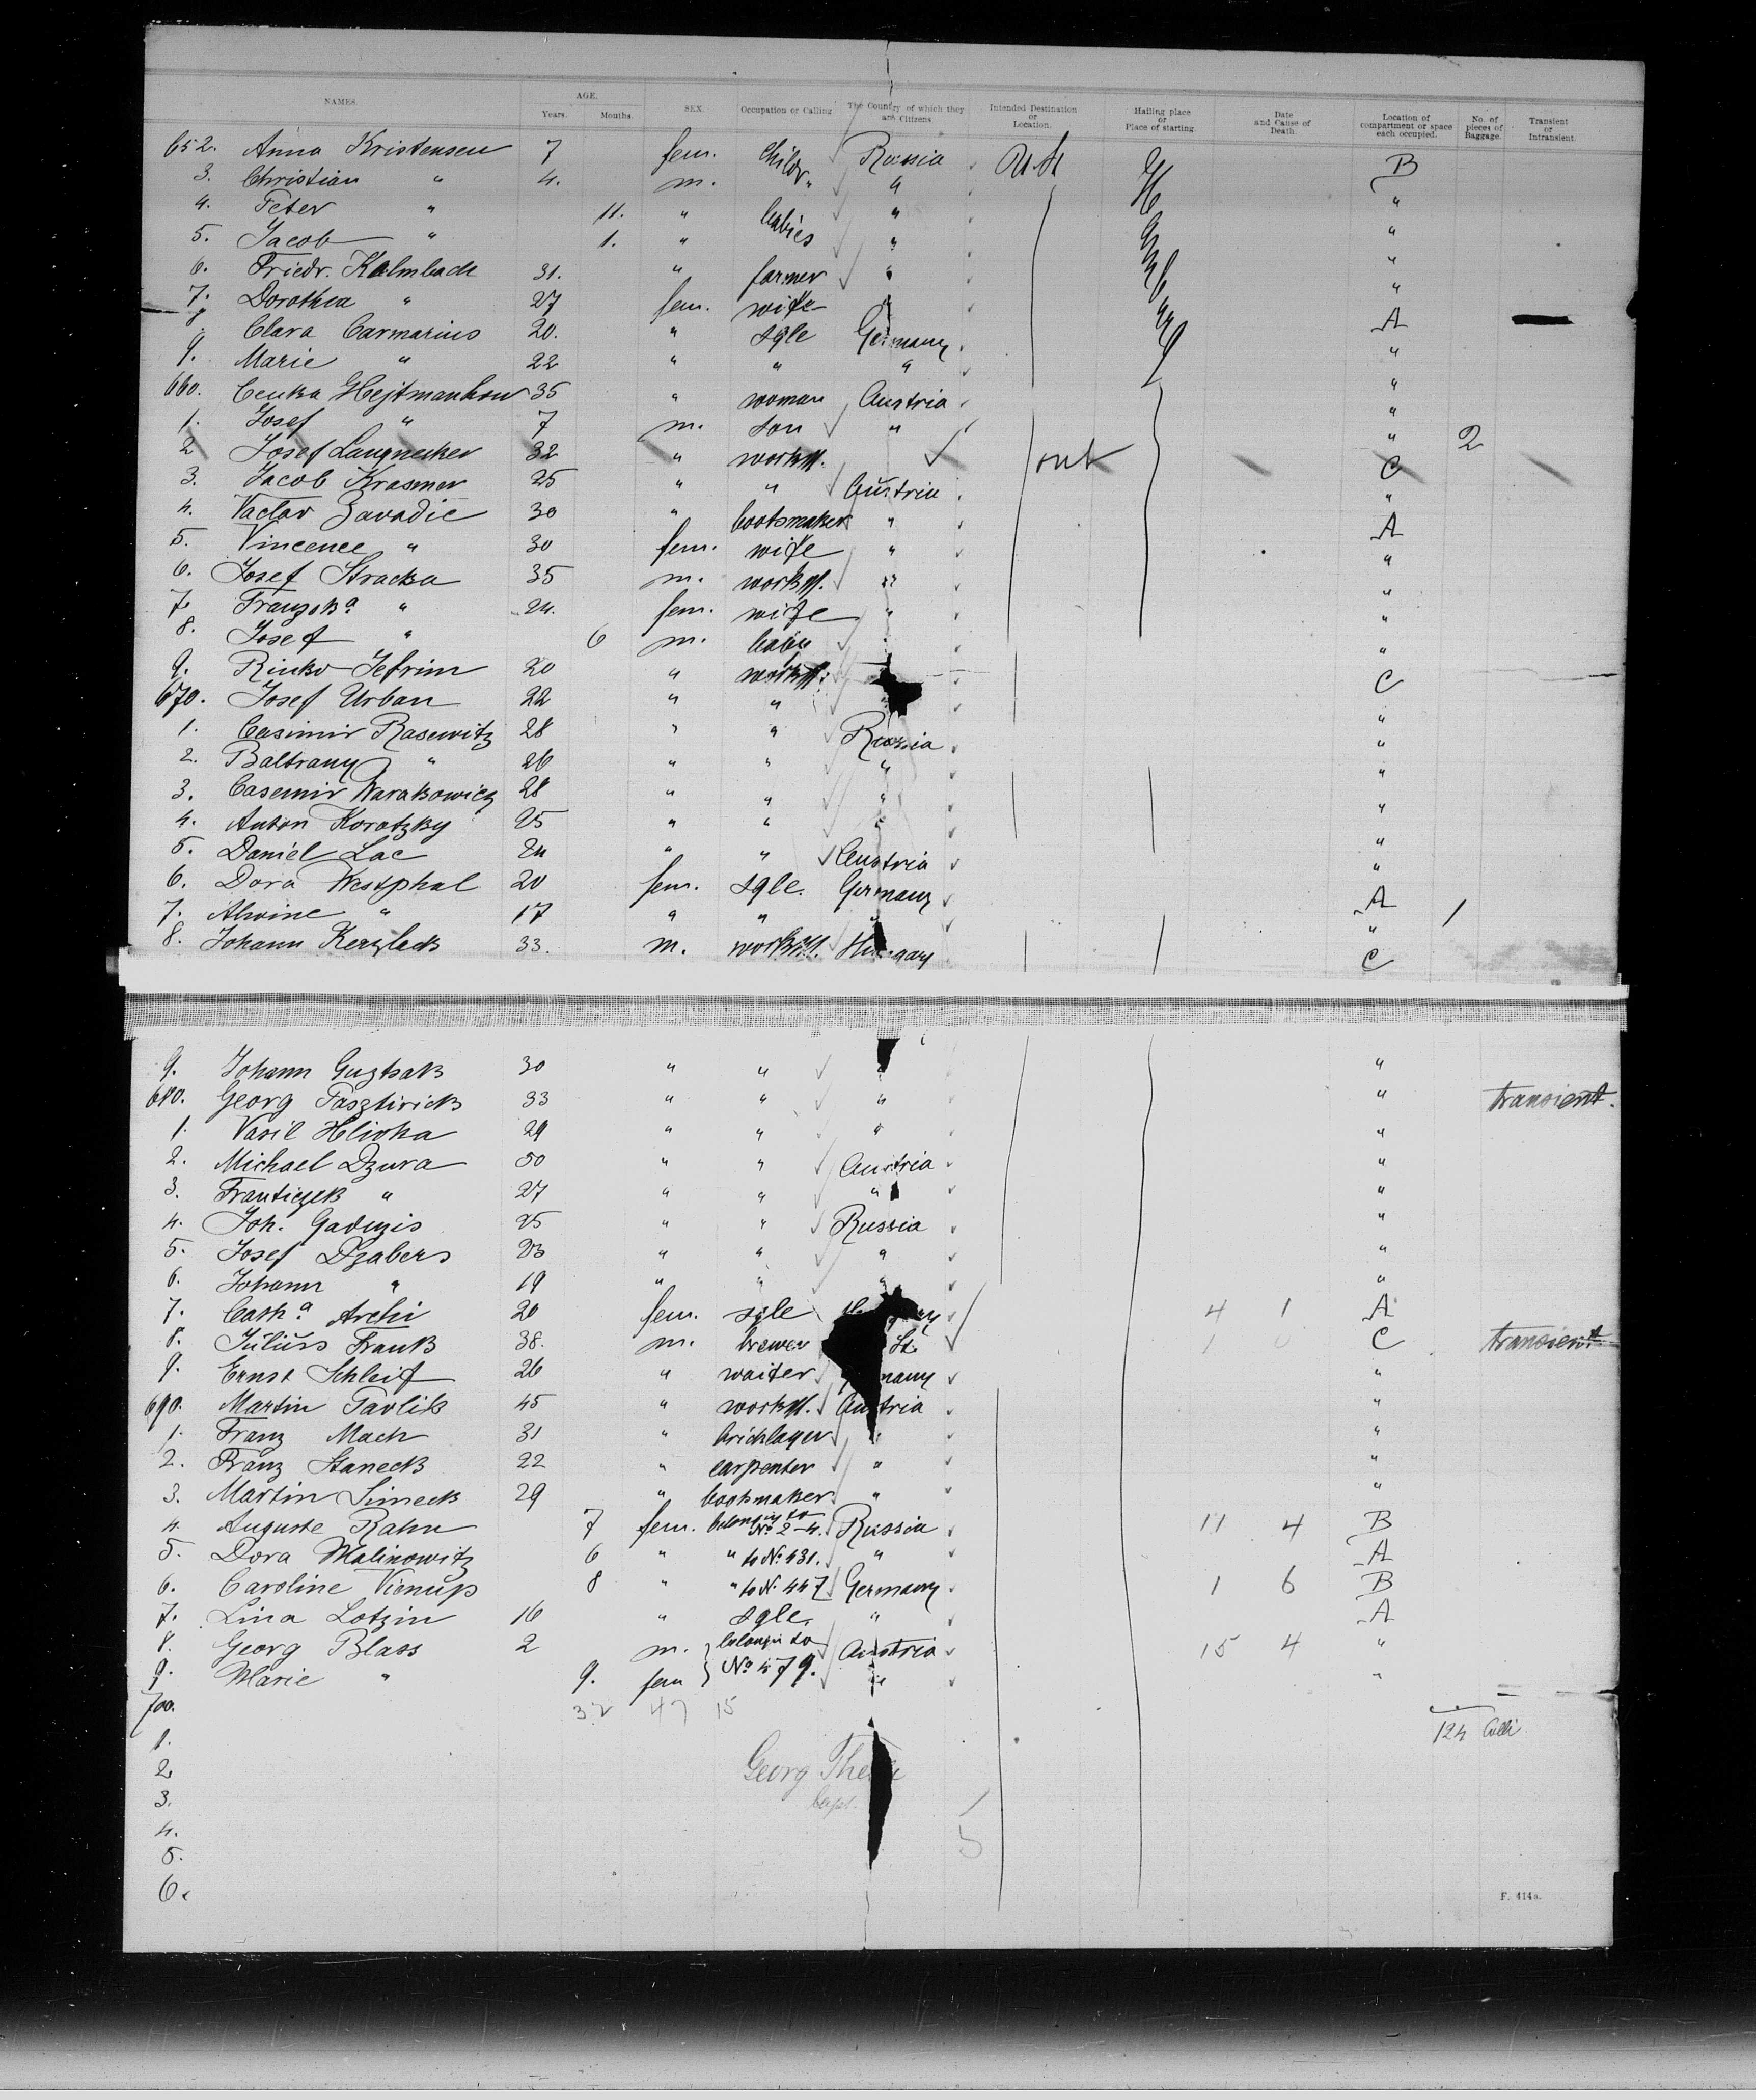 NAMES. AGE. Years. Mouths. SEX. Occupation or Calling The Country of which they are Citizens Intended Destination or Location. Hailing place or Place of starting. Date and Cause of Death. Location of compartment or space each occupied. No. of pieces of Baggage. Transient or Intransient.
652. Anna Kristensen 7 fem. Childr. Russia U.St. B
3. Christian " 4. m. " " "
4. Peter " 11. " babies " "
5. Jacob " 1. " " "
6. Friedr. Kalmbach 31. " farmer " "
7. Dorothea " 27 fem. wife " A
8. Clara Carmarius 20. " sgle Germany "
9. Marie " 22 " " " "
660. Cenka Hejtmankow 35 " woman Austria "
1. Josef " 7 m. son " " 2
2 Josef Langnecker 32 " workm. out C
3. Jacob Krasmer 25 " " Austria "
4. Vaclav Zavadic 30 " bootsmaker " A
5. Vincence " 30 fem. wife " "
6. Josef Stracka 35 m. workm. " "
7. Franziska " 24. fem. wife " "
8. Josef " 6 m. babie " "
9. Rinko Jefrim 20 " workm. C
670. Josef Urban 22 " " "
1. Casimir Rasewitz 28 " " Russia "
2. Baltrany " 26 " " " "
3. Casemir Warakowicz 28 " " " "
4. Anton Korotzky 25 " " " "
5. Daniel Lac 24 " " Austria "
6. Dora Westphal 20 fem. sgle. Germany A
7. Alwine " 17 " " " " 1
8. Johann Kerzleck 33. m. workm. Hungary C
9. Johann Guztsak 30 " " " "
680. Georg Pasztirick 33 " " " " transient.
1. Vasil Hlivka 29 " " " "
2. Michael Dzura 50 " " Austria "
3. Franticzek " 27 " " " "
4. Joh. Gaduzis 25 " " Russia "
5. Josef Dzabers 23 " " " "
6. Johann " 19 " " " "
7. Cath.a Archi 20 fem. sgle 4 1 A
8. Julius Frank 38. m. brewer St. 1 0 C transient
9. Ernst Schleif 26 " waiter Germany "
690. Martin Pavlik 45 " workm. Austria "
1. Franz Mach 31 " bricklayer " "
2. Franz Staneck 22 " carpenter " "
3. Martin Simeck 29 " bootmaker " "
4. Auguste Rahn 7 fem. belonging to No 2-4. Russia 11 4 B
5. Dora Malinowitz 6 " " to No 431. " A
6. Caroline Vienup 8 " " to No. 447 Germany 1 6 B
7. Lina Lotzin 16 " sgle. " A
8. Georg Blass 2 m. belongin to Austria 15 4 "
9. Marie " 9. fem No 479. " "
700. 32 47 15
1. 124 Colli.
2. Georg
3. Capt.
4.
5.
6.
F. 414a.